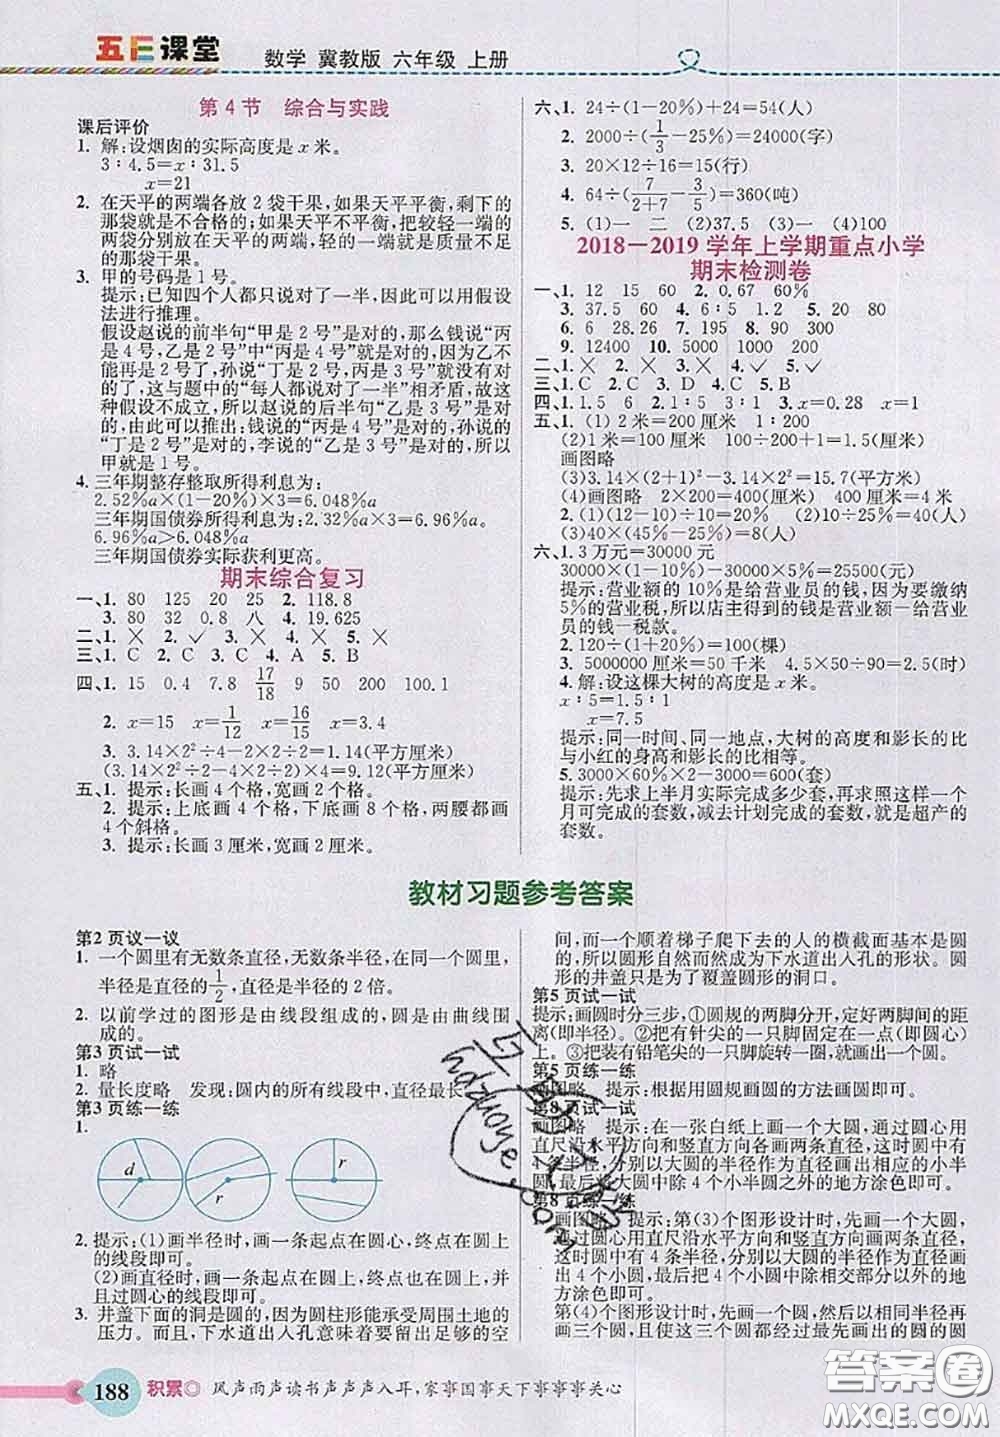 五E课堂 数学 冀教版 六年级 上册
第4节 综合与实践
课后评价
1. 解:设烟囱的实际高度是x米。
3∶4.5=x∶31.5
x=21
2. 在天平的两端各放2袋干果,如果天平平衡,剩下的
那袋就是不合格的;如果天平不平衡,把较轻一端的
两袋分别放在天平的两端,轻的一端就是质量不合
格的那袋干果。
3. 甲的号码是1号。
提示:已知四个人都只说对了一半,因此可以用假设
法进行推理。
假设赵说的前半句“甲是2号”是对的,那么钱说“丙
是4号,乙是2号”中“丙是4号”就是对的,因此乙不
能再是2号了,孙说“丁是2号,丙是3号”就都错了,
这与题中的“每人都说对了一半”相矛盾,故这种
假设不成立,所以赵说的后半句“乙是3号”是对的,
由此可以推出:钱说的“丙是4号”是对的,孙说的
“丁是2号”是对的,李说的“丁是3号”是错的,所以
甲就是1号。
4. 三年期整存整取所得利息为:
2.52%a×(1-20%)×3=6.048%a
三年期国债券所得利息为:2.32%a×3=6.96%a
6.96%a>6.048%a
三年期国债券实际获利更高。
期末综合复习
一、1. 80 125 20 25 2. 118.8
3. 80 32 0.8 八 4. 19.625
二、1. × 2. ✓ 3. × 4. × 5. ×
三、1. C 2. C 3. C 4. A 5. B
四、1. 15 0.4 7.8 17/18 9 50 200 100.1
2. x=15 x=1/12 x=16/15 x=3.4
3. 3.14×2²÷4-2×2÷2=1.14(平方厘米)
(3.14×2²÷2-2×2÷2)×4=9.12(平方厘米)
五、1. 提示:长画4个格,宽画2个格。
2. 提示:上底画4个格,下底画8个格,两腰都画
4个斜格。
3. 提示:长画3厘米,宽画2厘米。
六、1. 24÷(1-20%)+24=54(人)
2. 2000÷(1/3-25%)=24000(字)
3. 20×12÷16=15(行)
4. 64÷(7/2+7-3/5)=360(吨)
5. (1)一 二 (2)37.5 (3)一 (4)100
2018—2019学年上学期重点小学
期末检测卷
一、1. 12 15 60 2. 0.67 60%
3. 37.5 60 4. 6∶5 1.2 5. 20 80
6. 6 28.26 7. 195 8. 90 300
9. 12400 10. 5000 1000
二、1. × 2. × 3. × 4. ✓ 5. ✓
三、1. C 2. C 3. D 4. C 5. C
四、1. 1.5 6 2. 1∶5 3∶1 3. x=0.28 x=1
五、1. (1)2米=200厘米 1∶200
(2)1米=100厘米 100÷200×1+1=1.5(厘米)
画图略
(3)3.14×(2+1)²-3.14×2²=15.7(平方米)
(4)画图略 2×200=400(厘米) 400厘米=4米
2. (1)(12-10)÷10=20% (2)40 20
(3)40×(45%-25%)=8(人)
六、1. 3万元=30000元
30000×(1-10%)-30000×5%=25500(元)
提示:营业额的10%是给营业员的钱,又要缴纳
5%的营业税,所以店主得到的钱是营业额-给营业
员的钱-税款。
2. 120÷(1+20%)=100(棵)
3. 5000000厘米=50千米 4.5×50÷90=2.5(时)
4. 解:设这棵大树的高度是x米。
x∶5=1.5∶1
x=7.5
提示:同一时间、同一地点,大树的高度和影长的比
与小红的身高和影长的比相等。
5. 3000×60%×2-3000=600(套)
提示:先求上半月实际完成多少套,再求照这样一个
月可完成的套数,减去计划完成的套数,就是超产的
套数。
教材习题参考答案
第2页议一议
1. 一个圆里有无数条直径,无数条半径,在同一个圆里,
半径是直径的1/2,直径是半径的2倍。
2. 以前学过的图形是由线段组成的,圆是由曲线围
成的。
第3页试一试
1. 略
2. 量长度略 发现:圆内的所有线段中,直径最长。
第3页练一练
1.
d r r
2. 提示:(1)画半径时,画一条起点在圆心,终点在圆上
的线段即可。
(2)画直径时,画一条起点在圆上,终点也在圆上,并
且过圆心的线段即可。
3. 井盖下面的洞是圆的,因为圆柱形能承受周围土地的
压力。而且,下水道出入孔意味着要留出足够的空
间,而一个顺着梯子爬下去的人的横截面基本是圆
的,所以圆形自然而然成为下水道出入孔的形状。圆
形的井盖只是为了覆盖圆形的洞口。
第5页试一试
提示:画圆时分三步,①圆规的两脚分开,定好两脚间的
距离(即半径)。②把有针尖的一只脚固定在一点(即圆心)
上。③把装有铅笔尖的一只脚旋转一圈,就画出一个圆。
第5页练一练
画图略 提示:根据用圆规画圆的方法画圆即可。
第8页试一试
画图略 提示:在一张白纸上画一个大圆,通过圆心用
直尺沿水平方向和竖直方向画两条直径,这时圆中有
4条半径,分别以大圆的半径作为直径画出相应的小半
圆,最后将大圆中除4个小半圆之外的地方涂色即可。
第8页练一练
画图略 提示:第(3)个图形设计时,先画一个大圆,
用直尺沿水平方向和竖直方向画出两条直径,这时大
圆中有4条半径,分别以大圆的半径作为直径画出
4个小圆,最后将大圆中除相交部分以外的地
方涂色即可。
第(4)个图形设计时,先画一个圆,然后以相同半径再
画三个圆,只是要求这三个圆都经过最先画出的圆的圆
188 积累◎ 风声雨声读书声声声入耳,家事国事天下事事事关心
答案圈
MXQE.COM